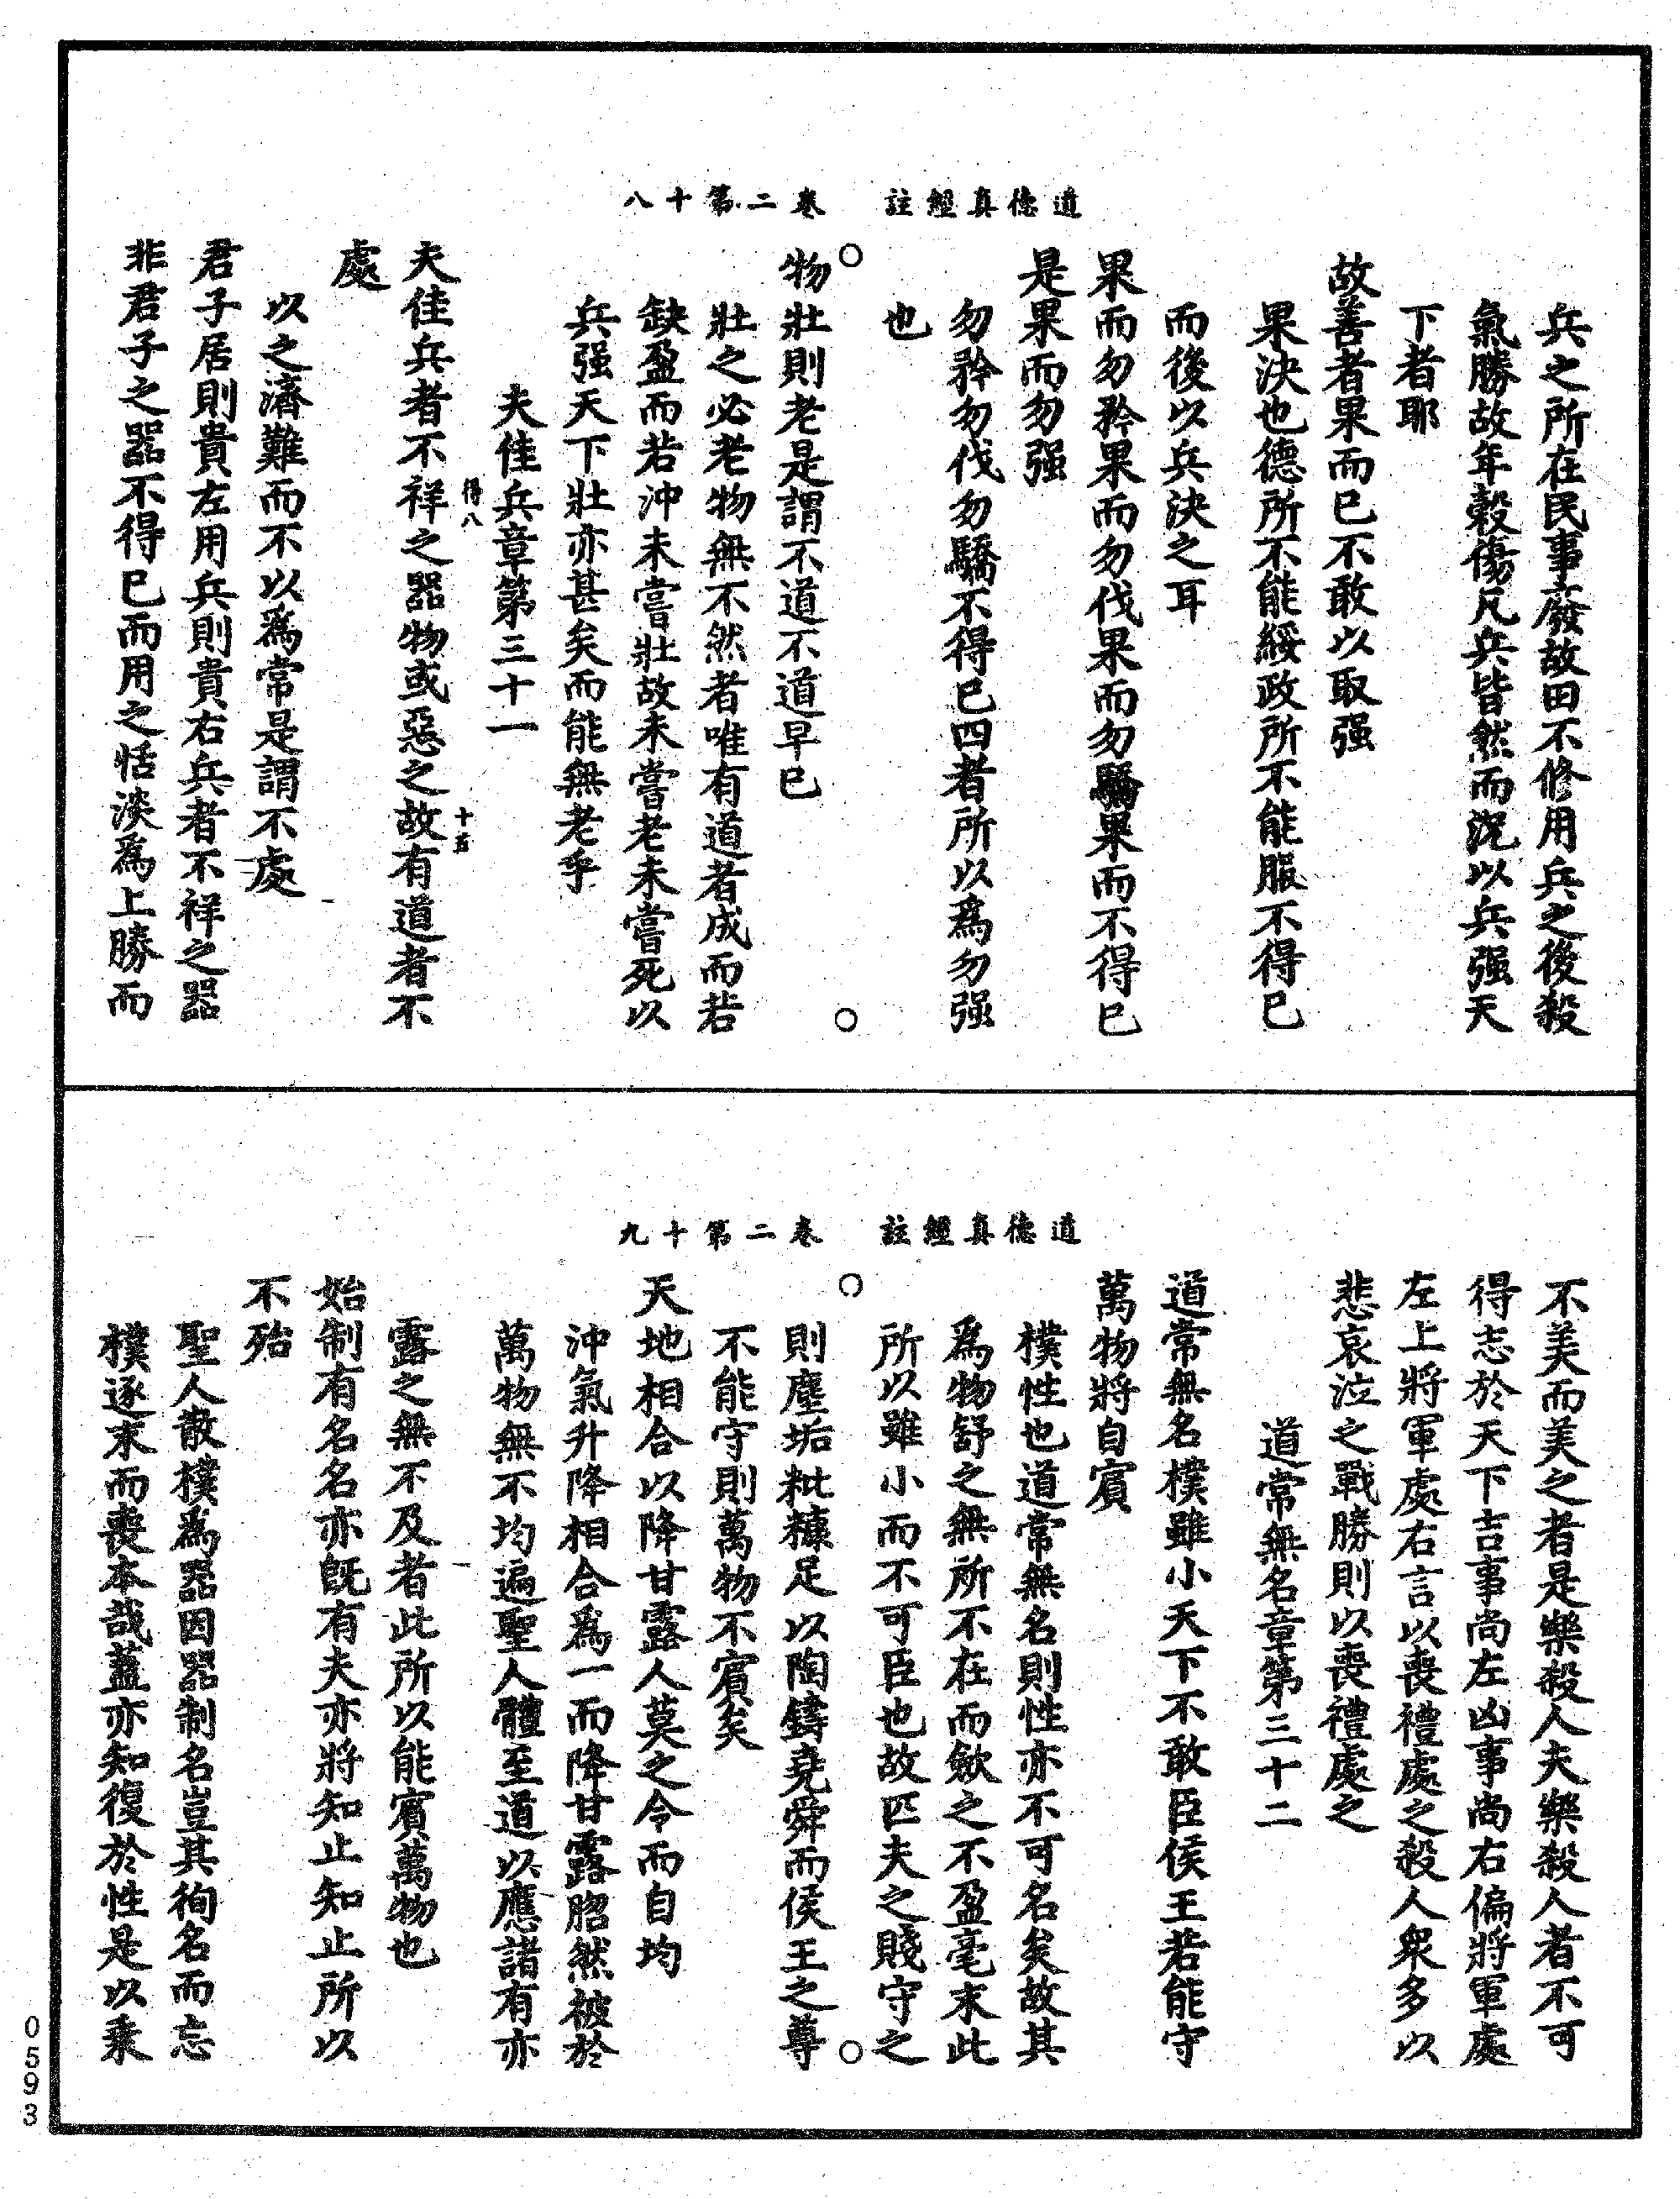 道德真經註　卷二第十八
兵之所在民事廢故田不修用兵之後殺
氣勝故年穀傷凡兵皆然而況以兵强天
下者耶
故善者果而已不敢以取强
果決也德所不能綏政所不能服不得已
而後以兵決之耳
果而勿矜果而勿伐果而勿驕果而不得已
是果而勿强
勿矜勿伐勿驕不得已四者所以爲勿强
也
物壯則老是謂不道不道早已
壯之必老物無不然者唯有道者成而若
缺盈而若沖未嘗壯故未嘗老未嘗死以
兵强天下壯亦甚矣而能無老乎
夫佳兵章第三十一
得八
十五
夫佳兵者不祥之器物或惡之故有道者不
處
以之濟難而不以爲常是謂不處
君子居則貴左用兵則貴右兵者不祥之器
非君子之器不得已而用之恬淡爲上勝而
道德真經註　卷二第十九
不美而美之者是樂殺人夫樂殺人者不可
得志於天下吉事尚左凶事尚右偏將軍處
左上將軍處右言以喪禮處之殺人衆多以
悲哀泣之戰勝則以喪禮處之
道常無名章第三十二
道常無名樸雖小天下不敢臣侯王若能守
萬物將自賓
樸性也道常無名則性亦不可名矣故其
爲物舒之無所不在而斂之不盈毫末此
所以雖小而不可臣也故匹夫之賤守之
則塵垢粃糠足以陶鑄堯舜而侯王之尊
不能守則萬物不賓矣
天地相合以降甘露人莫之令而自均
沖氣升降相合爲一而降甘露脗然被於
萬物無不均遍聖人體至道以應諸有亦
露之無不及者此所以能賓萬物也
始制有名名亦既有夫亦將知止知止所以
不殆
聖人散樸爲器因器制名豈其徇名而忘
樸逐末而喪本哉蓋亦知復於性是以乘
0593